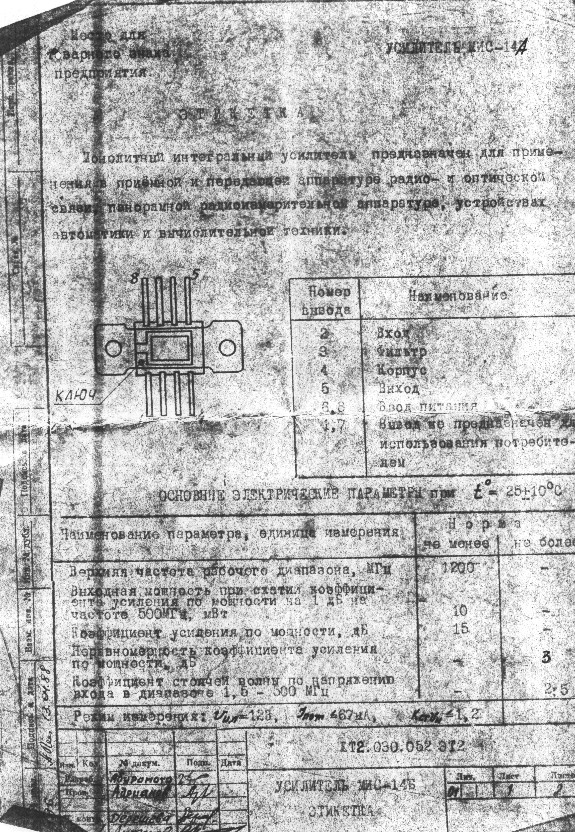 Место для
товарного знака
предприятия
УСИЛИТЕЛЬ МИС-14А
ЭТИКЕТКА
Монолитный интегральный усилитель предназначен для приме-
нения в приёмной и передающей аппаратуре радио- и оптической
связи, панорамной радиоизмерительной аппаратуре, устройствах
автоматики и вычислительной техники.
8 5
КЛЮЧ
Номер вывода Наименование
2 Вход
3 Фильтр
4 Корпус
5 Выход
6,8 Ввод питания
1,7 Вывод не предназначен для
использования потребите-
лем
ОСНОВНЫЕ ЭЛЕКТРИЧЕСКИЕ ПАРАМЕТРЫ при t°= 25±10°С
Наименование параметра, единица измерения
Норма
не менее не более
Верхняя частота рабочего диапазона, МГц 1200 -
Выходная мощность при сжатии коэффици-
ента усиления по мощности на 1 дБ на
частоте 500МГц, мВт 10 -
Коэффициент усиления по мощности, дБ 15 -
Неравномерность коэффициента усиления
по мощности, дБ - 3
Коэффициент стоячей волны по напряжению
входа в диапазоне 1,5 - 500 МГц - 2,5
Режим измерения: Uип=12В, Iпот≤67мА, ≤1,2
ХТ2.030.052 ЭТ2
№ докум. Подп. Дата
Разраб.
УСИЛИТЕЛЬ МИС-14Б
ЭТИКЕТКА
Лит. Лист Листов
1 2
Подп. и дата